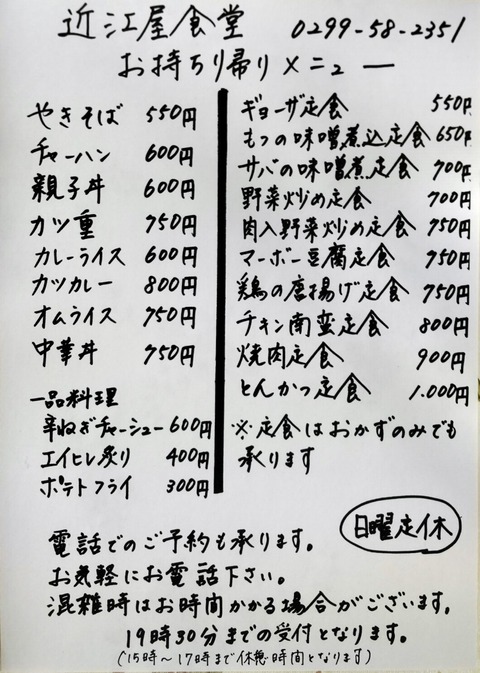 近江屋食堂 0299-58-2351
お持ち帰りメニュー
やきそば 550円
チャーハン 600円
親子丼 600円
カツ重 750円
カレーライス 600円
カツカレー 800円
オムライス 750円
中華丼 750円
一品料理
辛ねぎチャーシュー 600円
エイヒレ炙り 400円
ポテトフライ 300円
ギョーザ定食 550円
もつの味噌煮込定食 650円
サバの味噌煮定食 700円
野菜炒め定食 700円
肉入野菜炒め定食 750円
マーボー豆腐定食 750円
鶏の唐揚げ定食 750円
チキン南蛮定食 800円
焼肉定食 900円
とんかつ定食 1.000円
※定食はおかずのみでも
承ります
日曜定休
電話でのご予約も承ります。
お気軽にお電話下さい。
混雑時はお時間かかる場合がございます。
19時30分までの受付となります。
(15時～17時まで休憩時間となります)